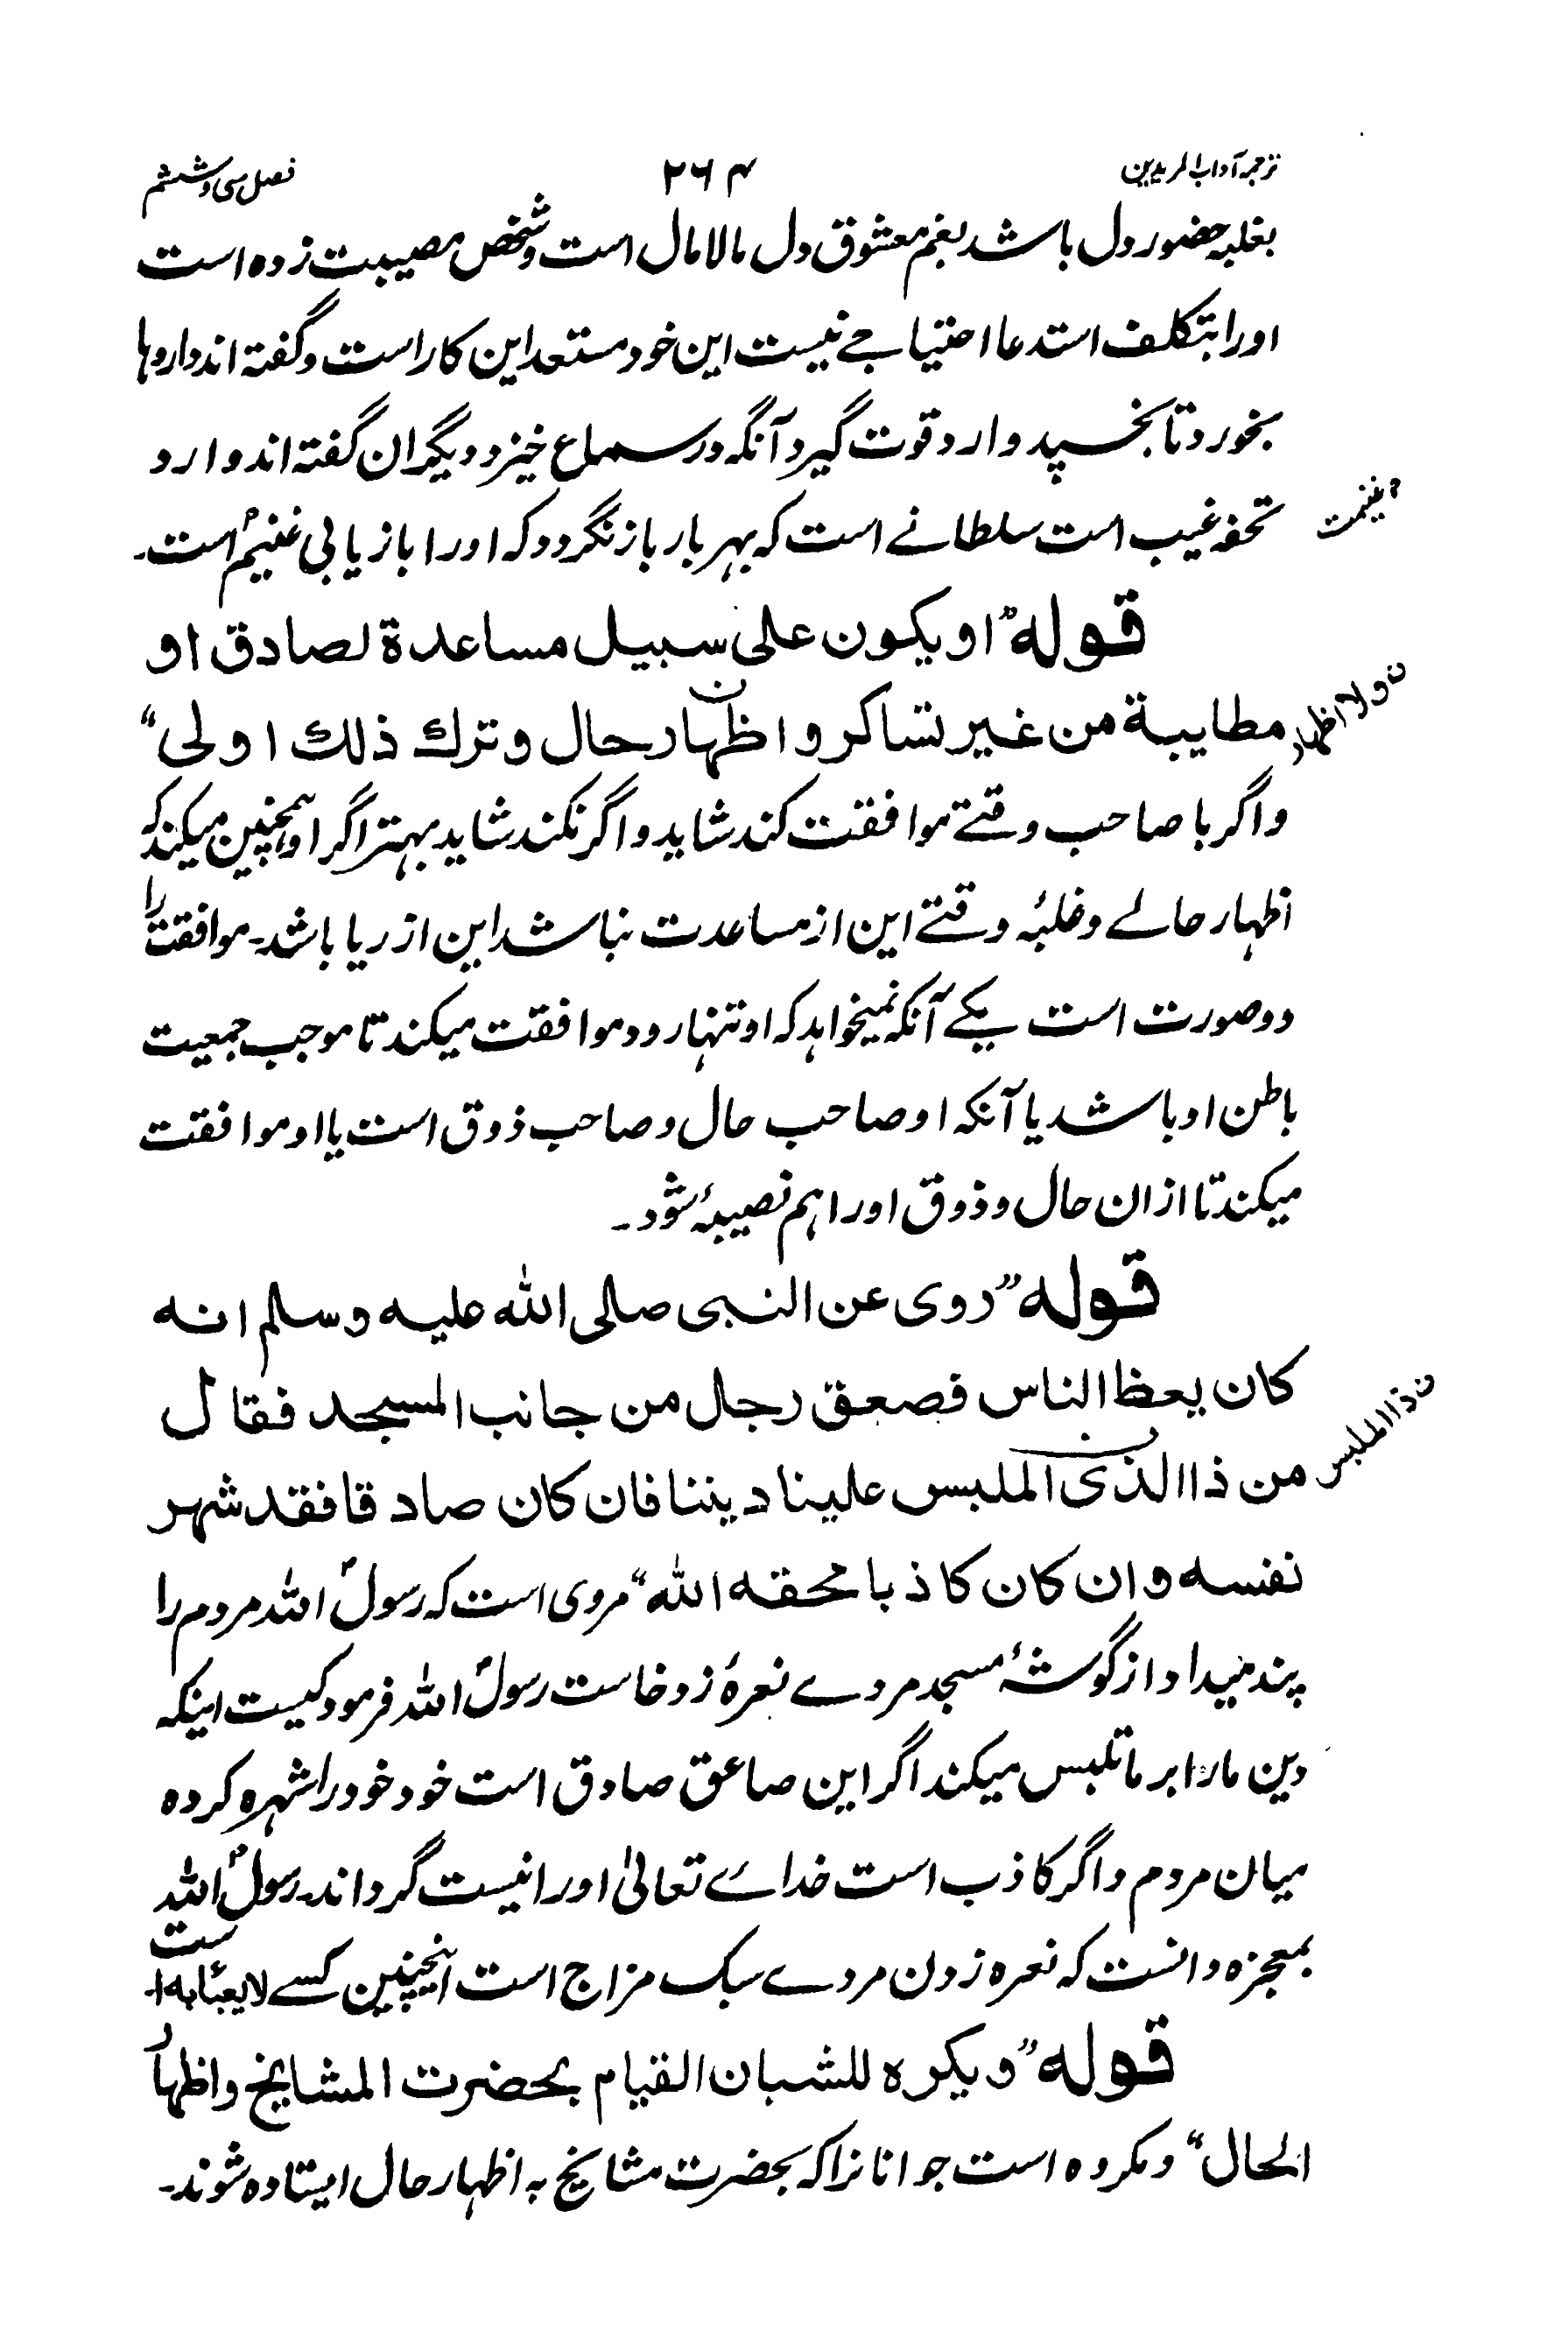 ترجمہ آداب المریدین ۲۶۴ فصل سی و ششم
بغلبہ حضور دل باشد بغم معشوق دل مالامال است و شخص مصیبت زدہ است
اورا بتکلف استدعا احتیاجے نیست این خود مستعد این کار است و گفتہ اند داروہا
بخورد تا بخسپد وارد قوت گیرد آنگہ در سماع خیزد و دیگران گفتہ اند وارد
تحفہ غیب است سلطانے است کہ بہر بار باز نگردد کہ اورا بازیابی غنیم است۔
غنیمت
قولہ ”او یکون علی سبیل مساعدة لصادق او
مطایبة من غیر تساکر و اظہار حال و ترك ذلك اولی“
ن ولا اظہار
و اگر با صاحب وقتے موافقت کند شاید و اگر نکند شاید بہتر اگر او ہمچنین میکند کہ
اظہار حالے و غلبۂ وقتے این از مساعدت نباشد این از ریا باشد۔ موافقت را
دو صورت است یکے آنکہ نمیخواہد کہ او تنہا رود موافقت میکند تا موجب جمعیت
باطن او باشد یا آنکہ او صاحب حال و صاحب ذوق است یا او موافقت
میکند تا ازان حال و ذوق اورا ہم نصیبۂ شود۔
قولہ ”روی عن النبی صلی اللہ علیہ وسلم انہ
کان یعظ الناس فصعق رجل من جانب المسجد فقال
من ذا الذی الملبس علینا دیننا فان کان صادقا فقد شہر
ن ذا الملبس
نفسہ وان کان کاذبا محقہ اللہ“ مروی است کہ رسولؐ اللہ مردم را
پند میداد از گوشۂ مسجد مردے نعرۂ زد خاست رسولؐ اللہ فرمود کیست اینکہ
دین مارا بر ما تلبس میکند اگر این صاعق صادق است خود خود را شہرہ کردہ
میان مردم و اگر کاذب است خداے تعالیٰ اورا نیست گرداند۔ رسولؐ اللہ
بمعجزہ دانست کہ نعرہ زدن مردے سبک مزاج است اینچنین کسے لا یعبأ بہ است
قولہ ”ویکرہ للشبان القیام بحضرت المشایخ و اظہار
الحال“ و مکروہ است جوانانرا کہ بحضرت مشایخ بہ اظہار حال ایستادہ شوند۔